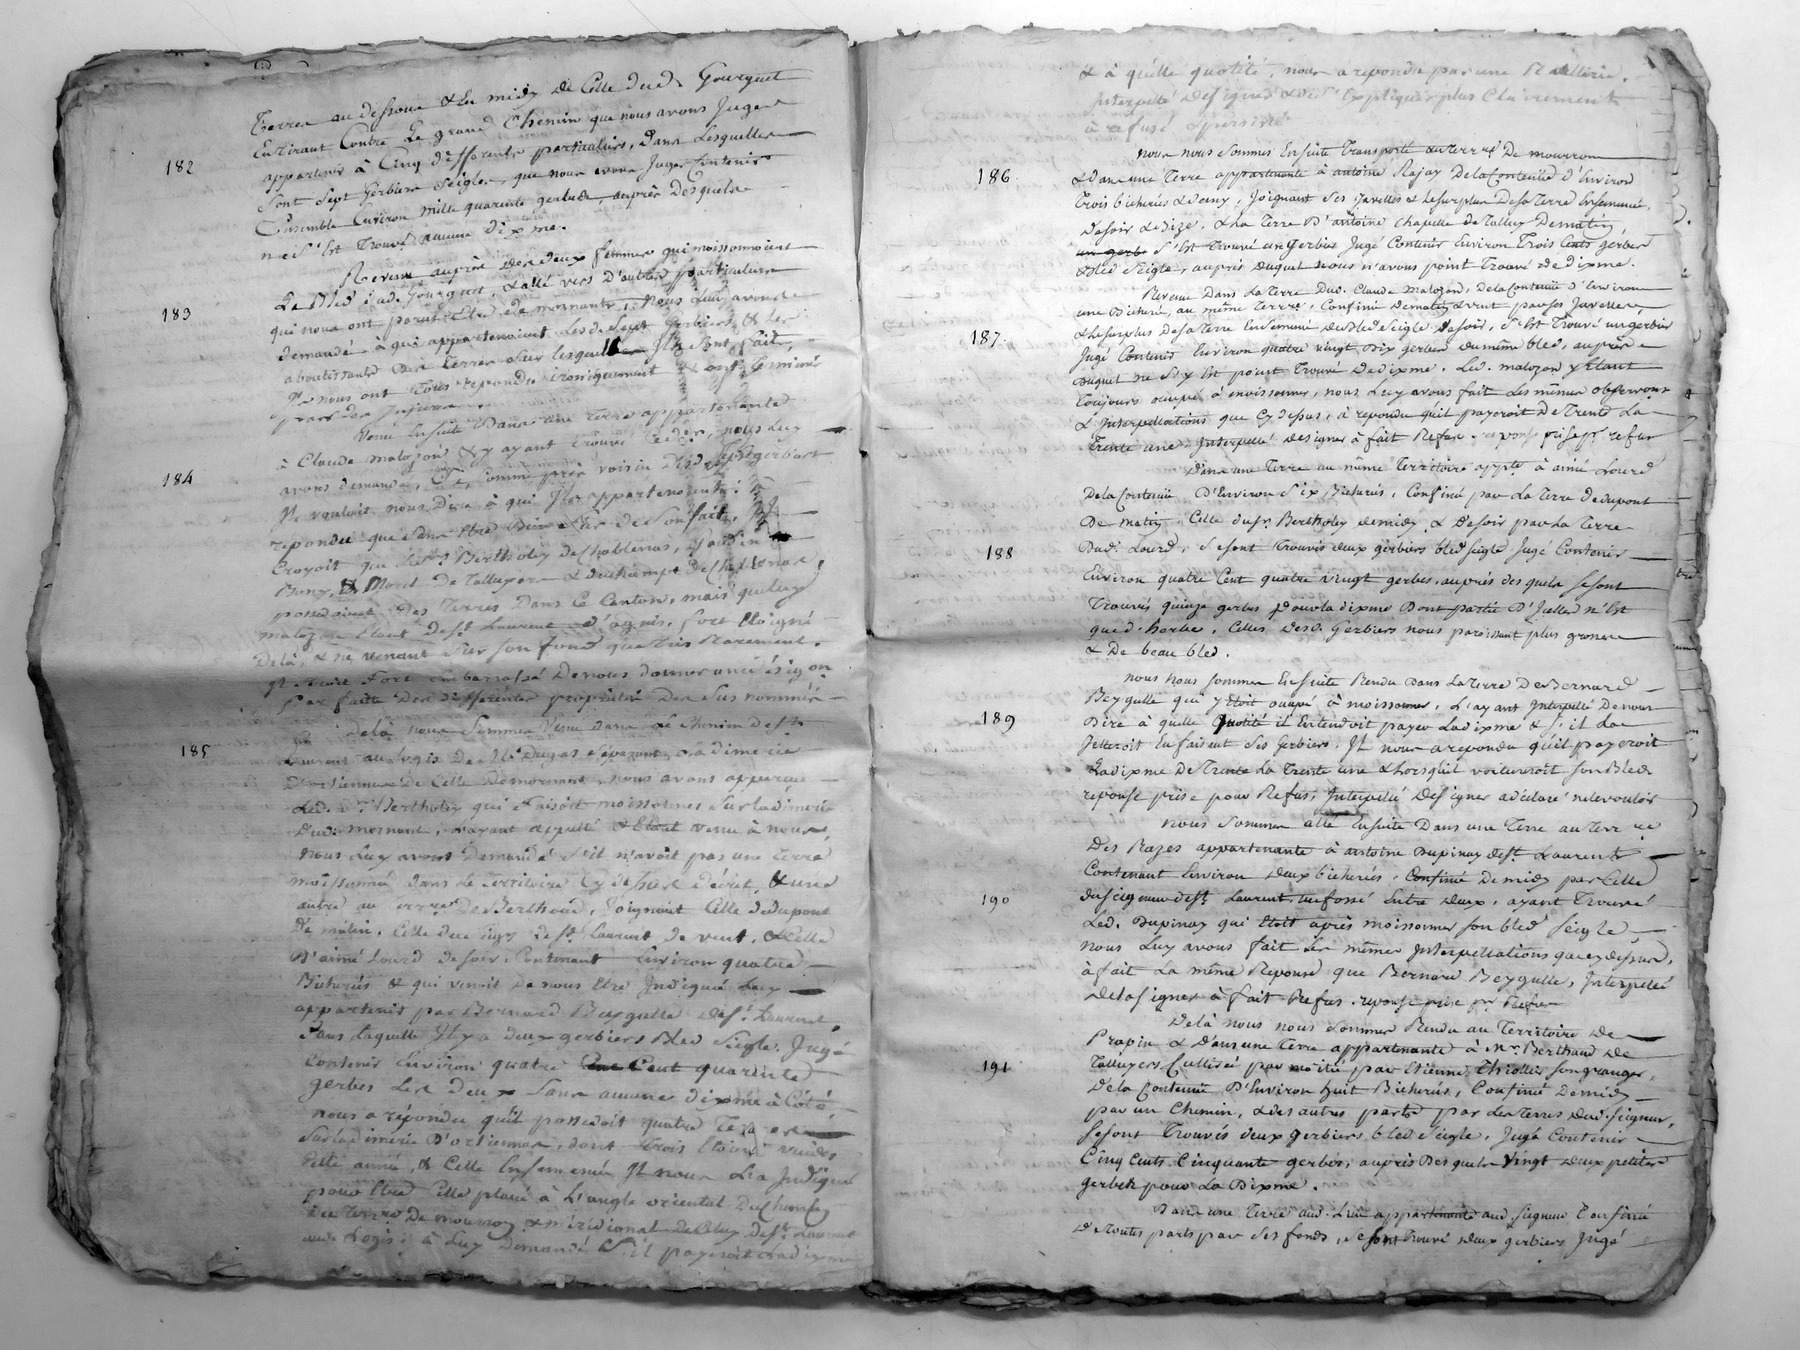 Terres au dessous & En midy de Celle dud. Gourguet
En tirant Contre Le grand Chemin que nous avons Jugés
182
appartenir à Cinq differents particuliers, dans Lesquelles
Sont Sept Gerbiers Seigle, que nous avons Jugés Contenir
Ensemble Environ mille quarente gerbes, auprès desquels
ne s'Est Trouvé aucune dixme.
Revenu auprès des deux femmes qui moissonnoient
183
Le Bled dud. Gourguet, & allé vers d'autres particuliers
qui nous ont parut Etre de mornant, Nous Leur avons
demandé à qui appartenoient Lesd. Sept Gerbiers & Les
aboutissants des Terres Sur lesquelles Ils Sont fait,
Ils nous ont Tous repondu ironiquement & ont Terminés
par des Injures
Venu Ensuite Dans une Terre appartenante
184
à Claude malozon & y ayant trouvé nous Luy
avons demandé, Comme voisin desd. Sept gerbiers
Il vouloit nous Dire à qui Ils appartenoient; à
repondu que Sans Etre bien Sûr de Son fait, Il
Croyoit que Les Srs. Bertholey de Chablenas,
Bony, & Morel de Talluyers & duchamp de
possedoient des Terres Dans Ce Canton, mais que luy
malozon Etant de St. Laurent d'agnis, fort Eloigné
De là, & ne venant Sur Son fond que très Rarement,
Il Seroit Fort Embarrassé De nous donner une désigon
Parfaite Des differentes proprietés Des Sus nommés
De là nous Sommes Venu dans Le Chemin de St.
185
Laurent au Logis de Mr. Dugas Séparant La dimerie
D'ortiennes de Celle De mornant, nous avons apperçu
Led. Sr. Bertholey qui faisoit moissonner Sur la dimerie
Dud. mornant, L'ayant appellé & Etant venu à nous,
nous Luy avons Demandé S'il n'avoit pas une Terre
moissonnée dans Le Territoire Cy dessus décrit, & une
autre au terre De Berthoud, Joignant Celle de dupont
De matin, Celle du Curé de St. Laurent de vent, & Celle
D'aimé Lourd de soir, Contenant Environ quatre
Bicherés & qui venoit De nous Etre Indiquée Luy
appartenir par Bernard Beygulle de St. Laurent,
Dans laquelle Il y a deux gerbiers Bled Seigle, Jugé
Contenir Environ quatre Cent quarente
gerbes Les deux Sans aucune dixme à Côté,
nous a répondu qu'il possedoit quatre Terres
Sur la dimerie D'ortiennes, dont Trois Etoient vuides
Cette année, & Celle Ensemencée Il nous L'a Indiqué
pour Etre Celle placée à L'angle oriental Du Chemin
du Terre De mourron & méridional de Celuy de St. Laurent
aud. Logis; à Luy Demandé S'il payeroit La dixme
& à qu'elle quotité, nous a repondu par une Raillerie.
Interpellé De signer & de s'Expliquer plus Clairement
à refusé & persisté
nous nous Sommes Ensuite Transporté au Terre De mourron
186.
& dans une Terre appartenante à antoine Rajay De la Contenüe d'Environ
Trois bicherées & demy, Joignant Ses Javelles & Le Surplus De Sa Terre Ensemencée,
De Soir & de bize, & La Terre D'antoine Chapelle de Talluy De matin,
un gerb S'Est Trouvé un Gerbier Jugé Contenir Environ Trois Cents gerbes
Bled Seigle, auprès duquel nous n'avons point Trouvé de dixme.
Revenu Dans La Terre Dud. Claude Malozon, De la Contenüe d'Environ
187.
une Bicherée, au même Terre, Confiné De matin & vent par Ses Javelles
& Le Surplus De Sa Terre Ensemencé du Bled Seigle De Soir, S'Est Trouvé un gerbier
Jugé Contenir Environ quatre vingt Dix gerbes Du même bled, auprès
Duquel ne S'y Est point Trouvé De dixme. Led. malozon y Etant
Toujours occupé à moissonner, nous Luy avons fait Les mêmes observons
& Interpellations que Cy Dessus, à repondu qu'il payeroit De Trente La
Trente une; Interpellé De signer à fait Refus. reponse prise pr. refus
Dans une Terre au même Territoire appte. à aimé Lourd
De la Contenüe D'Environ Six Bicherées, Confiné par La Terre de dupont
De matin, Celle du Sr. Bertholey De midy, & De soir par La Terre
188
Dud. Lourd, Se sont Trouvés deux gerbiers bled seigle Jugé Contenir
Environ quatre Cent quatre vingt gerbes, auprès desquels Se sont
Trouvés quinze gerbes pour la dixme Dont partie D'Icelles n'Est
que d'herbe, Celles Desd. Gerbiers nous paroissant plus grosses
& De beau bled.
nous nous Sommes Ensuite Rendu Dans La Terre De Bernard
189
Beygulle qui y Etoit occupé à moissonner, L'ayant Interpellé De nous
Dire à quelle Quotité il Entendoit payer La dixme & S'il La
Jetteroit En faisant Ses Gerbiers, Il nous a repondu qu'il payeroit
La dixme De Trente La Trente une & Lorsqu'il voitureroit Son Bled
reponse prise pour Refus, Interpellé De signer a déclaré ne le vouloir
nous Sommes allé Ensuite Dans une Terre au Terre
Des Razes appartenante à antoine Dupinay de St. Laurent
Contenant Environ deux bicherés, Confiné De midy par Celle
190
du seigneur de St. Laurent, un fossé Entre deux, ayant Trouvé
Led. Dupinay qui Etoit après moissonner Son bled Seigle
nous Luy avons fait Les mêmes Interpellations que cy dessus,
à fait La même Reponse que Bernard Beygulle, Interpellé
De le signer à fait Refus. reponse prise pr. Refus
De là nous nous Sommes Rendu au Territoire De
Prapin & Dans une Terre appartenante à Mr. Berthaud de
191
Talluyers Cultivée par moitié par Etienne Thiollier Son granger,
De la Contenüe D'Environ huit Bicherés, Confiné De midy
par un Chemin, & des autres parts par Les Terres dud. Seigneur,
Se sont Trouvés deux gerbiers bled Seigle, Jugé Contenir
Cinq Cents Cinquante gerbes, auprès Desquels Vingt deux petites
gerbes pour La Dixme.
Dans une Terre aud. Lieu appartenante aud. seigneur Confiné
De Toutes parts par Ses fonds, Se sont Trouvé deux gerbiers Jugé